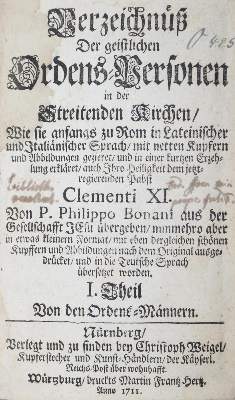 Verzeichnüß
Der geistlichen
Ordens-Personen
in der
Streitenden Kirchen/
Wie sie anfangs zu Rom in Lateinischer
und Italiänischer Sprach/ mit netten Kupfern
und Abbildungen gezieret/ und in einer kurtzen Erzeh-
lung erkläret/ auch Ihro Heiligkeit dem jetzt-
regierenden Pabst
Clementi XI.
Von P. Philippo Bonani aus der
Gesellschafft JEsu übergeben/ nunmehro aber
in etwas kleinern Format/ mit eben dergleichen schönen
Kupffern und Abbildungen nach dem Original ausge-
drücket/ und in die Teutsche Sprach
übersetzet worden.
I. Theil
Von den Ordens-Männern.
Nürnberg/
Verlegt und zu finden bey Christoph Weigel/
Kupferstecher und Kunst-Händlern/ der Käyserl.
Reichs-Post über wohnhafft.
Würzburg/ druckts Martin Frantz Hertz.
Anno 1711.